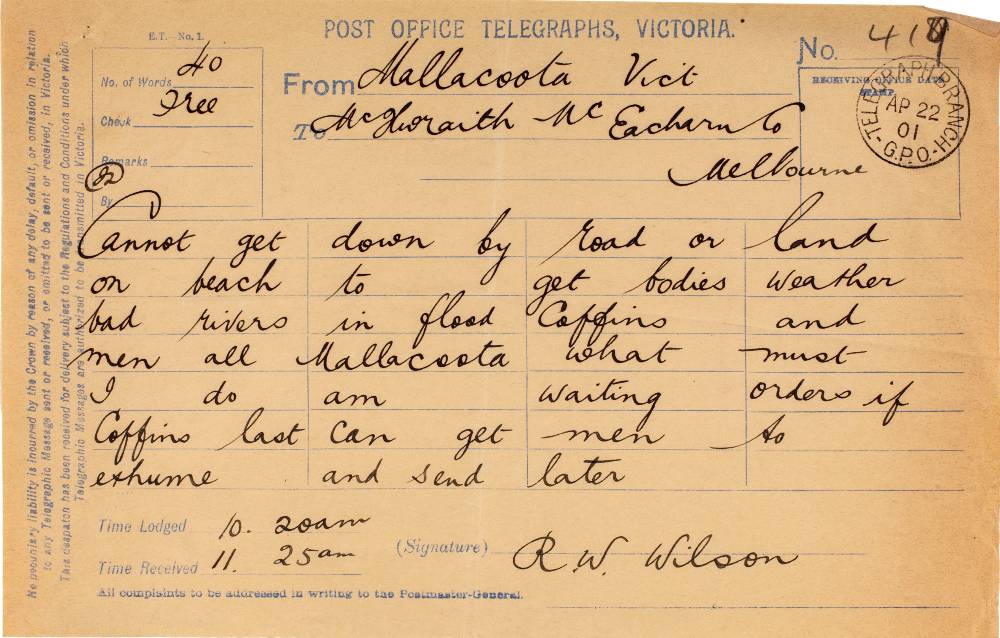 POST OFFICE TELEGRAPHS, VICTORIA.
E.T.—No. 1.
No. 418
No. of Words 40
Check Free
Remarks
By
From Mallacoota Vict
To McIlwraith McEacharn Co
Melbourne
RECEIVING OFFICE DATE STAMP.
TELEGRAPH BRANCH
AP 22
01
G.P.O.
Cannot get down by road or land
on beach to get bodies weather
bad rivers in flood Coffins and
men all Mallacoota what must
I do am waiting orders if
Coffins last can get men to
exhume and send later
Time Lodged 10. 20am
Time Received 11. 25am
(Signature) R. W. Wilson
All complaints to be addressed in writing to the Postmaster-General.
No pecuniary liability is incurred by the Crown by reason of any delay, default, or omission in relation
to any Telegraphic Message sent or received, or omitted to be sent or received, in Victoria.
This despatch has been received for delivery subject to the Regulations and Conditions under which
Telegraphic Messages are authorized to be transmitted in Victoria.